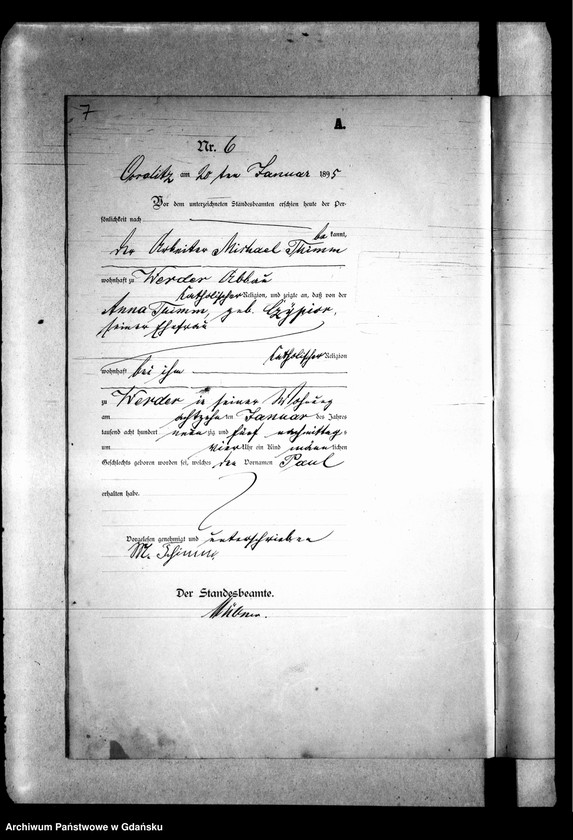 7
A.
Nr. 6
am 20 ten Januar 1895
Vor dem unterzeichneten Standesbeamten erschien heute der Per-
sönlichkeit nach
be kannt,
der Arbeiter Michael Thimm
wohnhaft zu Werder Abbau
katholischer Religion, und zeigte an, daß von der
Anna Thimm, geb. Czÿpior,
seiner Ehefrau
katholischer Religion
wohnhaft bei ihm
zu Werder in seiner Wohnung
am achtzehn ten Januar des Jahres
tausend acht hundert neun zig und fünf nachmittag-s
um vier Uhr ein Kind männ lichen
Geschlechts geboren worden sei, welches den Vornamen Paul
erhalten habe.
Vorgelesen genehmigt und unterschrieben
M.
Der Standesbeamte.
Archiwum Państwowe w Gdańsku